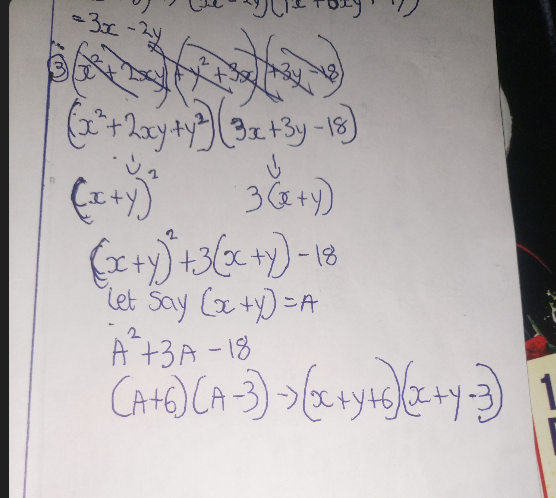 = 3x - 2y
③ (x² + 2xy) (+ y² + 3x) (+3y - 18)
(x² + 2xy + y²) (3x + 3y - 18)
↓ ↓
(x + y)² 3(x + y)
(x + y)² + 3(x + y) - 18
Let say (x + y) = A
A² + 3A - 18
(A+6)(A-3) → (x+y+6)(x+y-3)
1